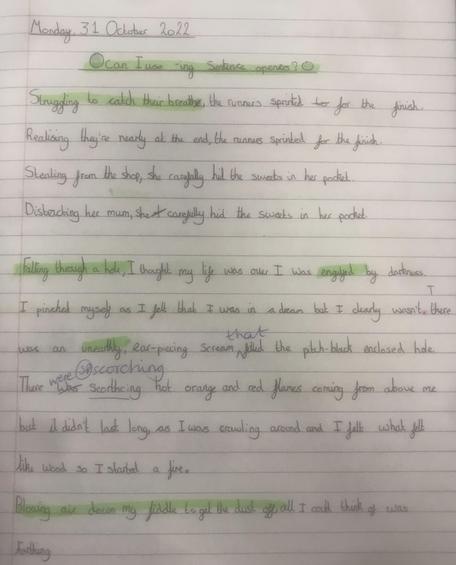 Monday, 31 October 2022
Can I use -ing Sentence openers?
Struggling to catch their breathe, the runners sprinted for the finish.
Realising they're nearly at the end, the runners sprinted for the finish.
Stealing from the shop, she carefully hid the sweets in her pocket.
Distracting her mum, she carefully hid the sweets in her pocket
Falling through a hole, I thought my life was over I was engulfed by darkness.
I pinched myself as I felt that I was in a dream but I clearly wasn't. There
was an unearthly, ear-piecing scream that filled the pitch-black enclosed hole.
sp scorching
There were scortheing hot orange and red flames coming from above me
but it didn't last long, as I was crawling around and I felt what felt
like wood so I started a fire.
Blowing air down my fiddle to get the dust off, all I could think of was